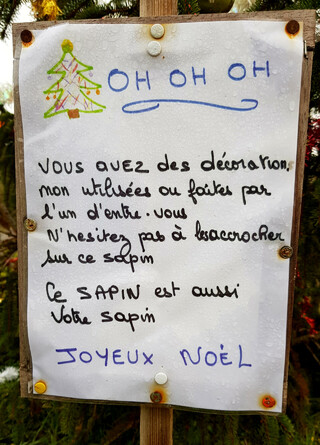 OH OH OH
VOUS AVEZ des décoration
non utilisées ou faites par
l'un d'entre-vous
N'hesitez pas à les accrocher
sur ce sapin
Ce SAPIN est aussi
Votre sapin
JOYEUX NOËL